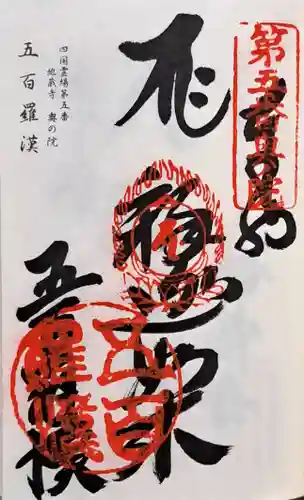 第五番奥院
奉納
釈迦如来
五羅漢
五百羅漢
四国霊場第五番
地蔵寺 奥の院
五百羅漢